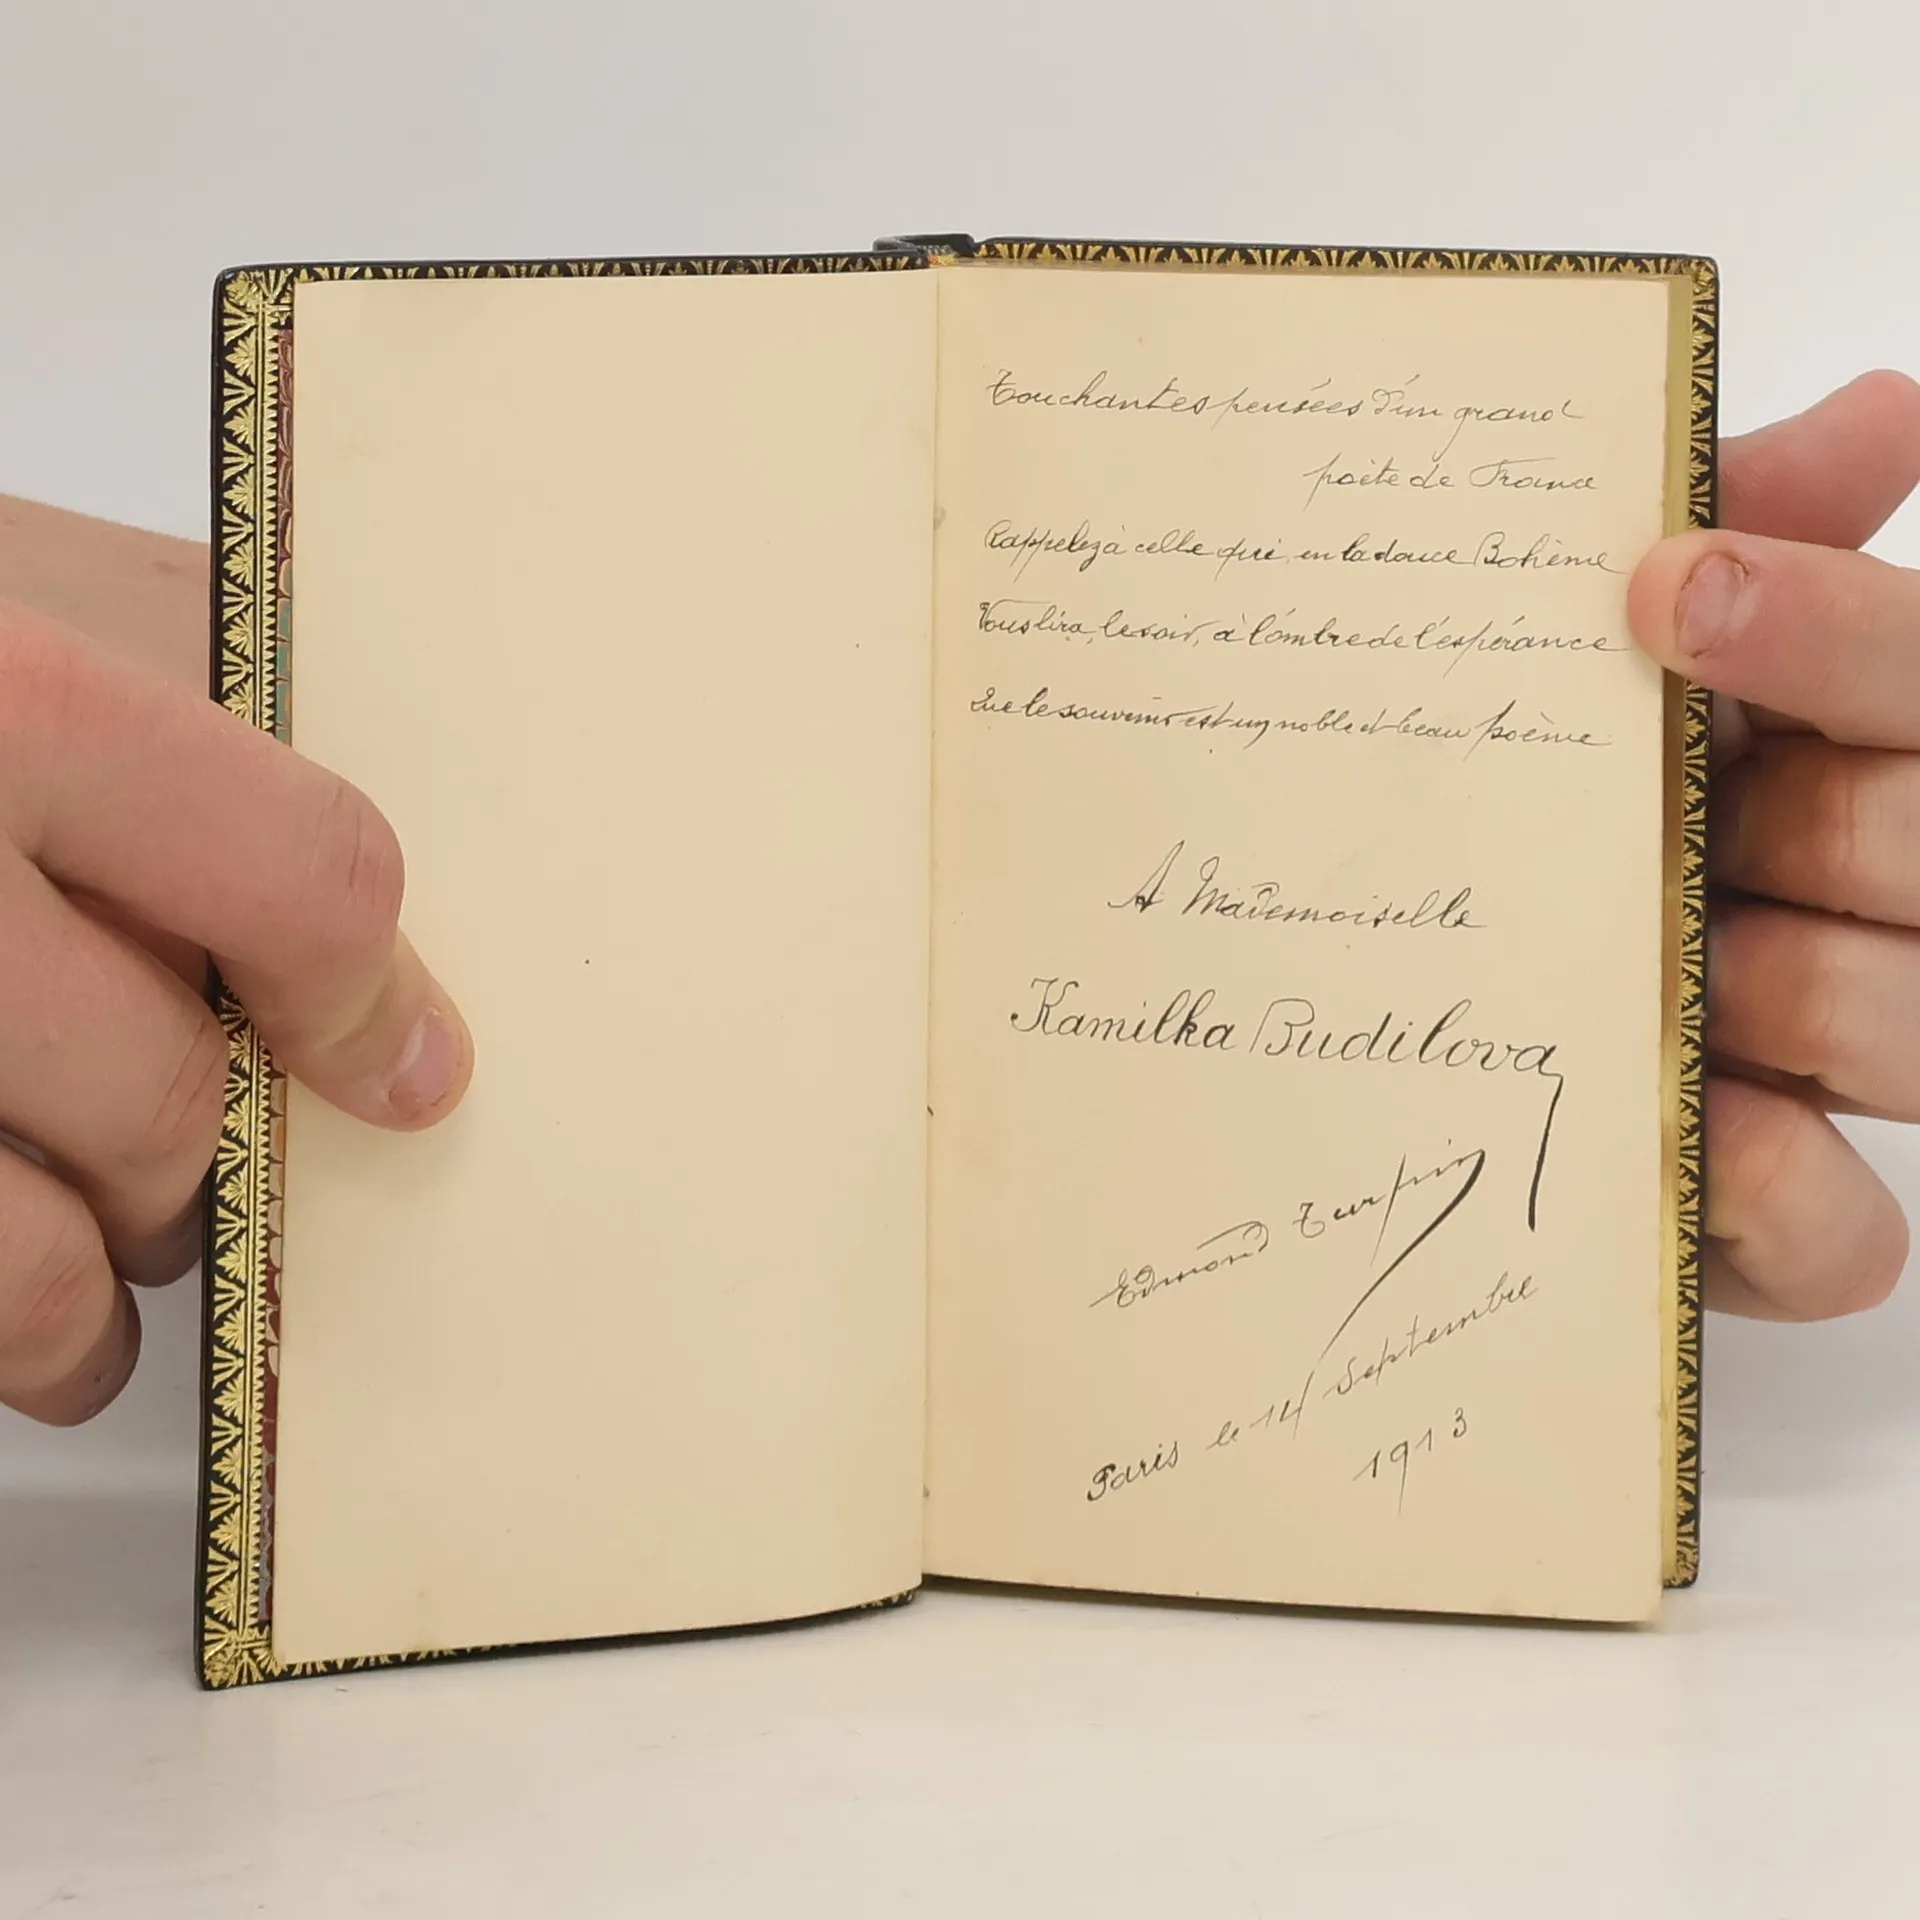 Touchantes pensées d'un grand
poète de France
Rappelez à celle qui, en la douce Bohème
Vous lira, le soir, à l'ombre de l'espérance
Que le souvenir est un noble et beau poème
A Mademoiselle
Kamilka Budilova
Edmond Turpin
Paris le 14 Septembre
1913